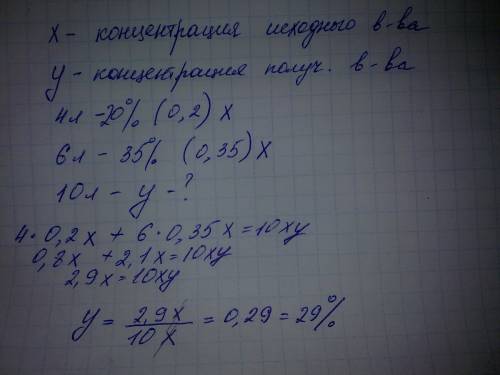 x - концентрация исходного в-ва
y - концентрация получ. в-ва
4л - 20% (0,2) x
6л - 35% (0,35) x
10л - y - ?
4 · 0,2x + 6 · 0,35x = 10xy
0,8x + 2,1x = 10xy
2,9x = 10xy
y = 2,9x / 10x = 0,29 = 29%